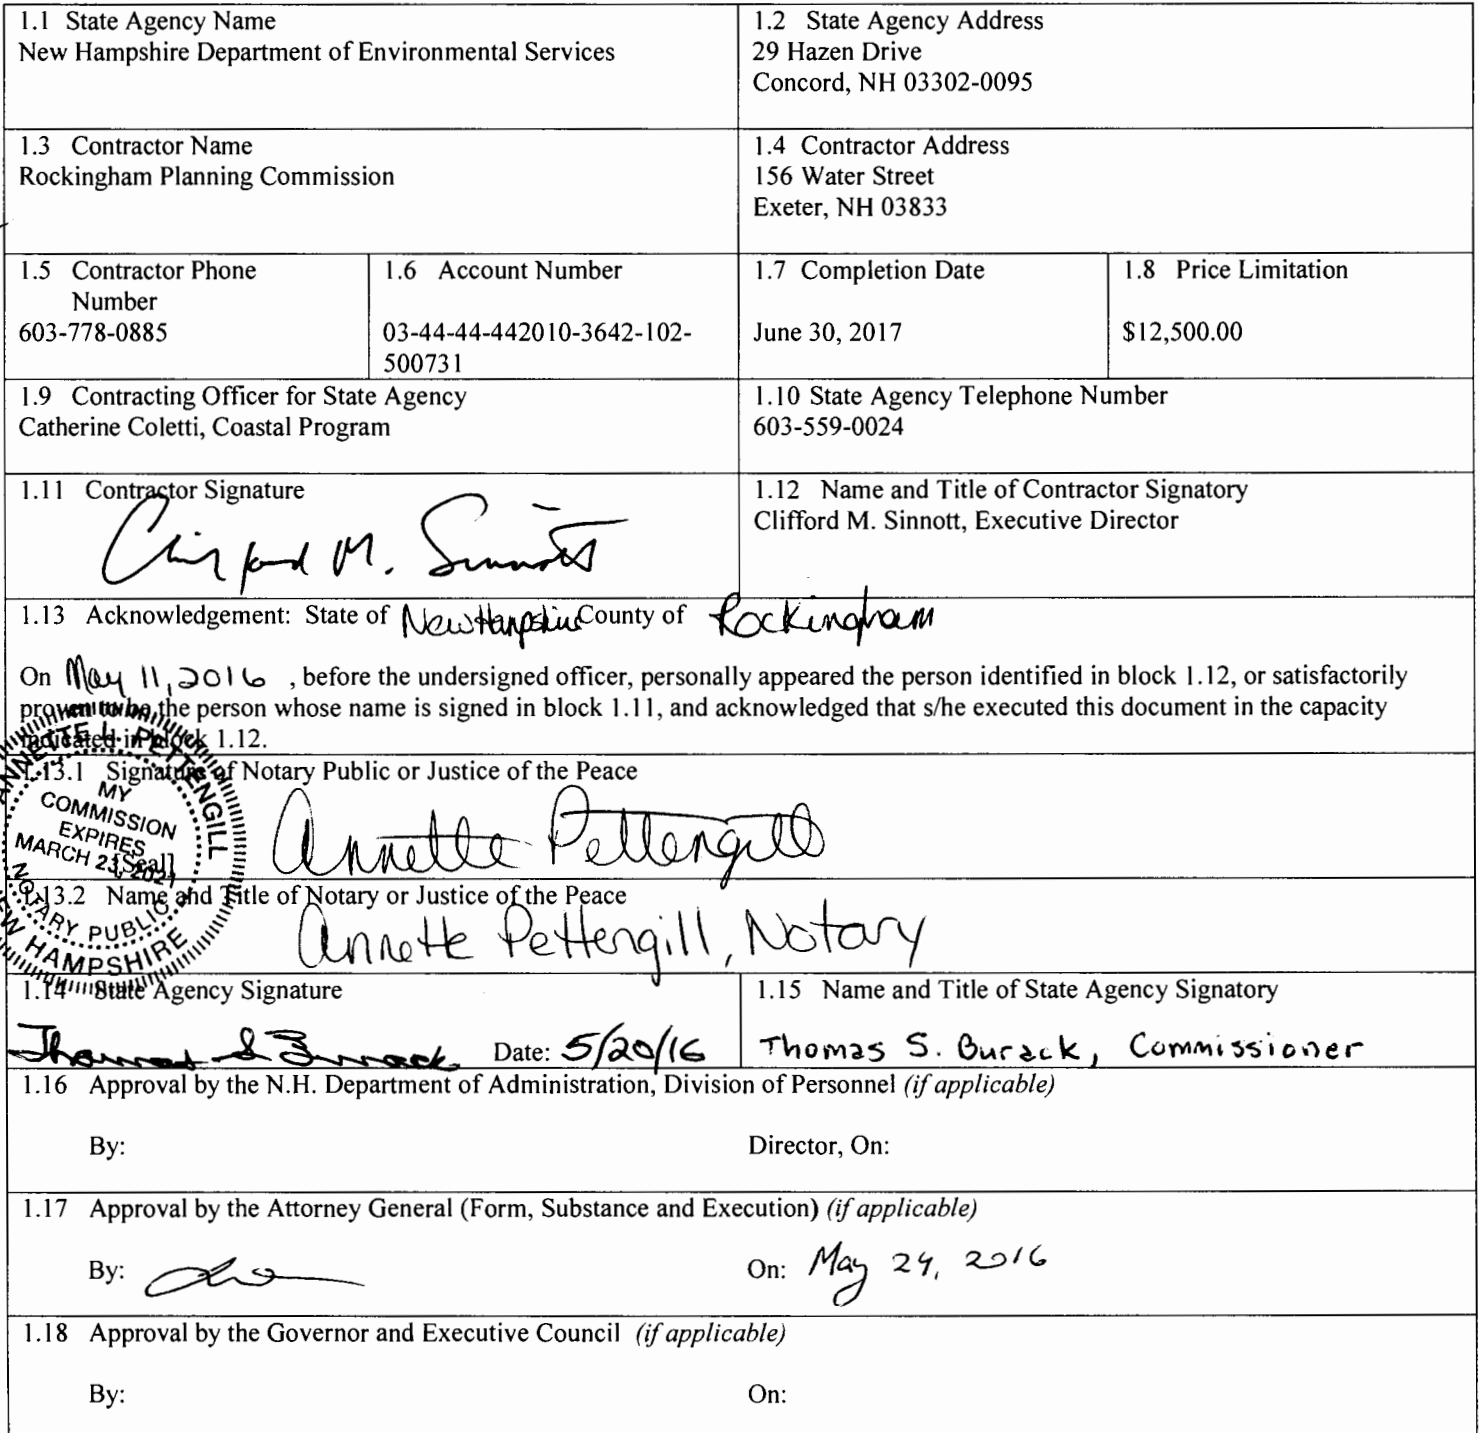 1.1 State Agency Name
New Hampshire Department of Environmental Services
1.2 State Agency Address
29 Hazen Drive
Concord, NH 03302-0095
1.3 Contractor Name
Rockingham Planning Commission
1.4 Contractor Address
156 Water Street
Exeter, NH 03833
1.5 Contractor Phone
Number
603-778-0885
1.6 Account Number
03-44-44-442010-3642-102-
500731
1.7 Completion Date
June 30, 2017
1.8 Price Limitation
$12,500.00
1.9 Contracting Officer for State Agency
Catherine Coletti, Coastal Program
1.10 State Agency Telephone Number
603-559-0024
1.11 Contractor Signature
Clifford M. Sinnott
1.12 Name and Title of Contractor Signatory
Clifford M. Sinnott, Executive Director
1.13 Acknowledgement: State of New Hampshire County of Rockingham
On May 11, 2016 , before the undersigned officer, personally appeared the person identified in block 1.12, or satisfactorily
proven to be the person whose name is signed in block 1.11, and acknowledged that s/he executed this document in the capacity
indicated in block 1.12.
1.13.1 Signature of Notary Public or Justice of the Peace
Annette Pettengill
[Seal]
ANNETTE L. PETTENGILL
MY
COMMISSION
EXPIRES
MARCH 23, 2021
NOTARY PUBLIC
NEW HAMPSHIRE
1.13.2 Name and Title of Notary or Justice of the Peace
Annette Pettengill, Notary
1.14 State Agency Signature
Thomas S Burack Date: 5/20/16
1.15 Name and Title of State Agency Signatory
Thomas S. Burack, Commissioner
1.16 Approval by the N.H. Department of Administration, Division of Personnel (if applicable)
By: Director, On:
1.17 Approval by the Attorney General (Form, Substance and Execution) (if applicable)
By: On: May 24, 2016
1.18 Approval by the Governor and Executive Council (if applicable)
By: On: